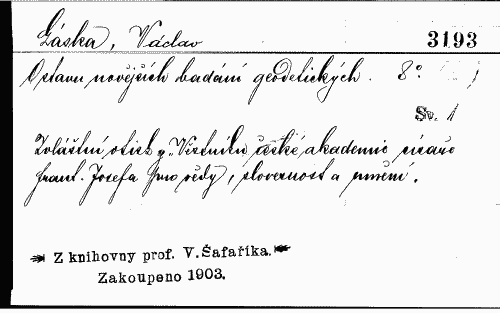 Láska, Václav
3193
O stavu novějších badání geodetických. 8°.
Sv. 1
Zvláštní otisk z „Věstníku české akademie císaře
Frant. Josefa pro vědy, slovesnost a umění.
Z knihovny prof. V. Šafaříka.
Zakoupeno 1903.